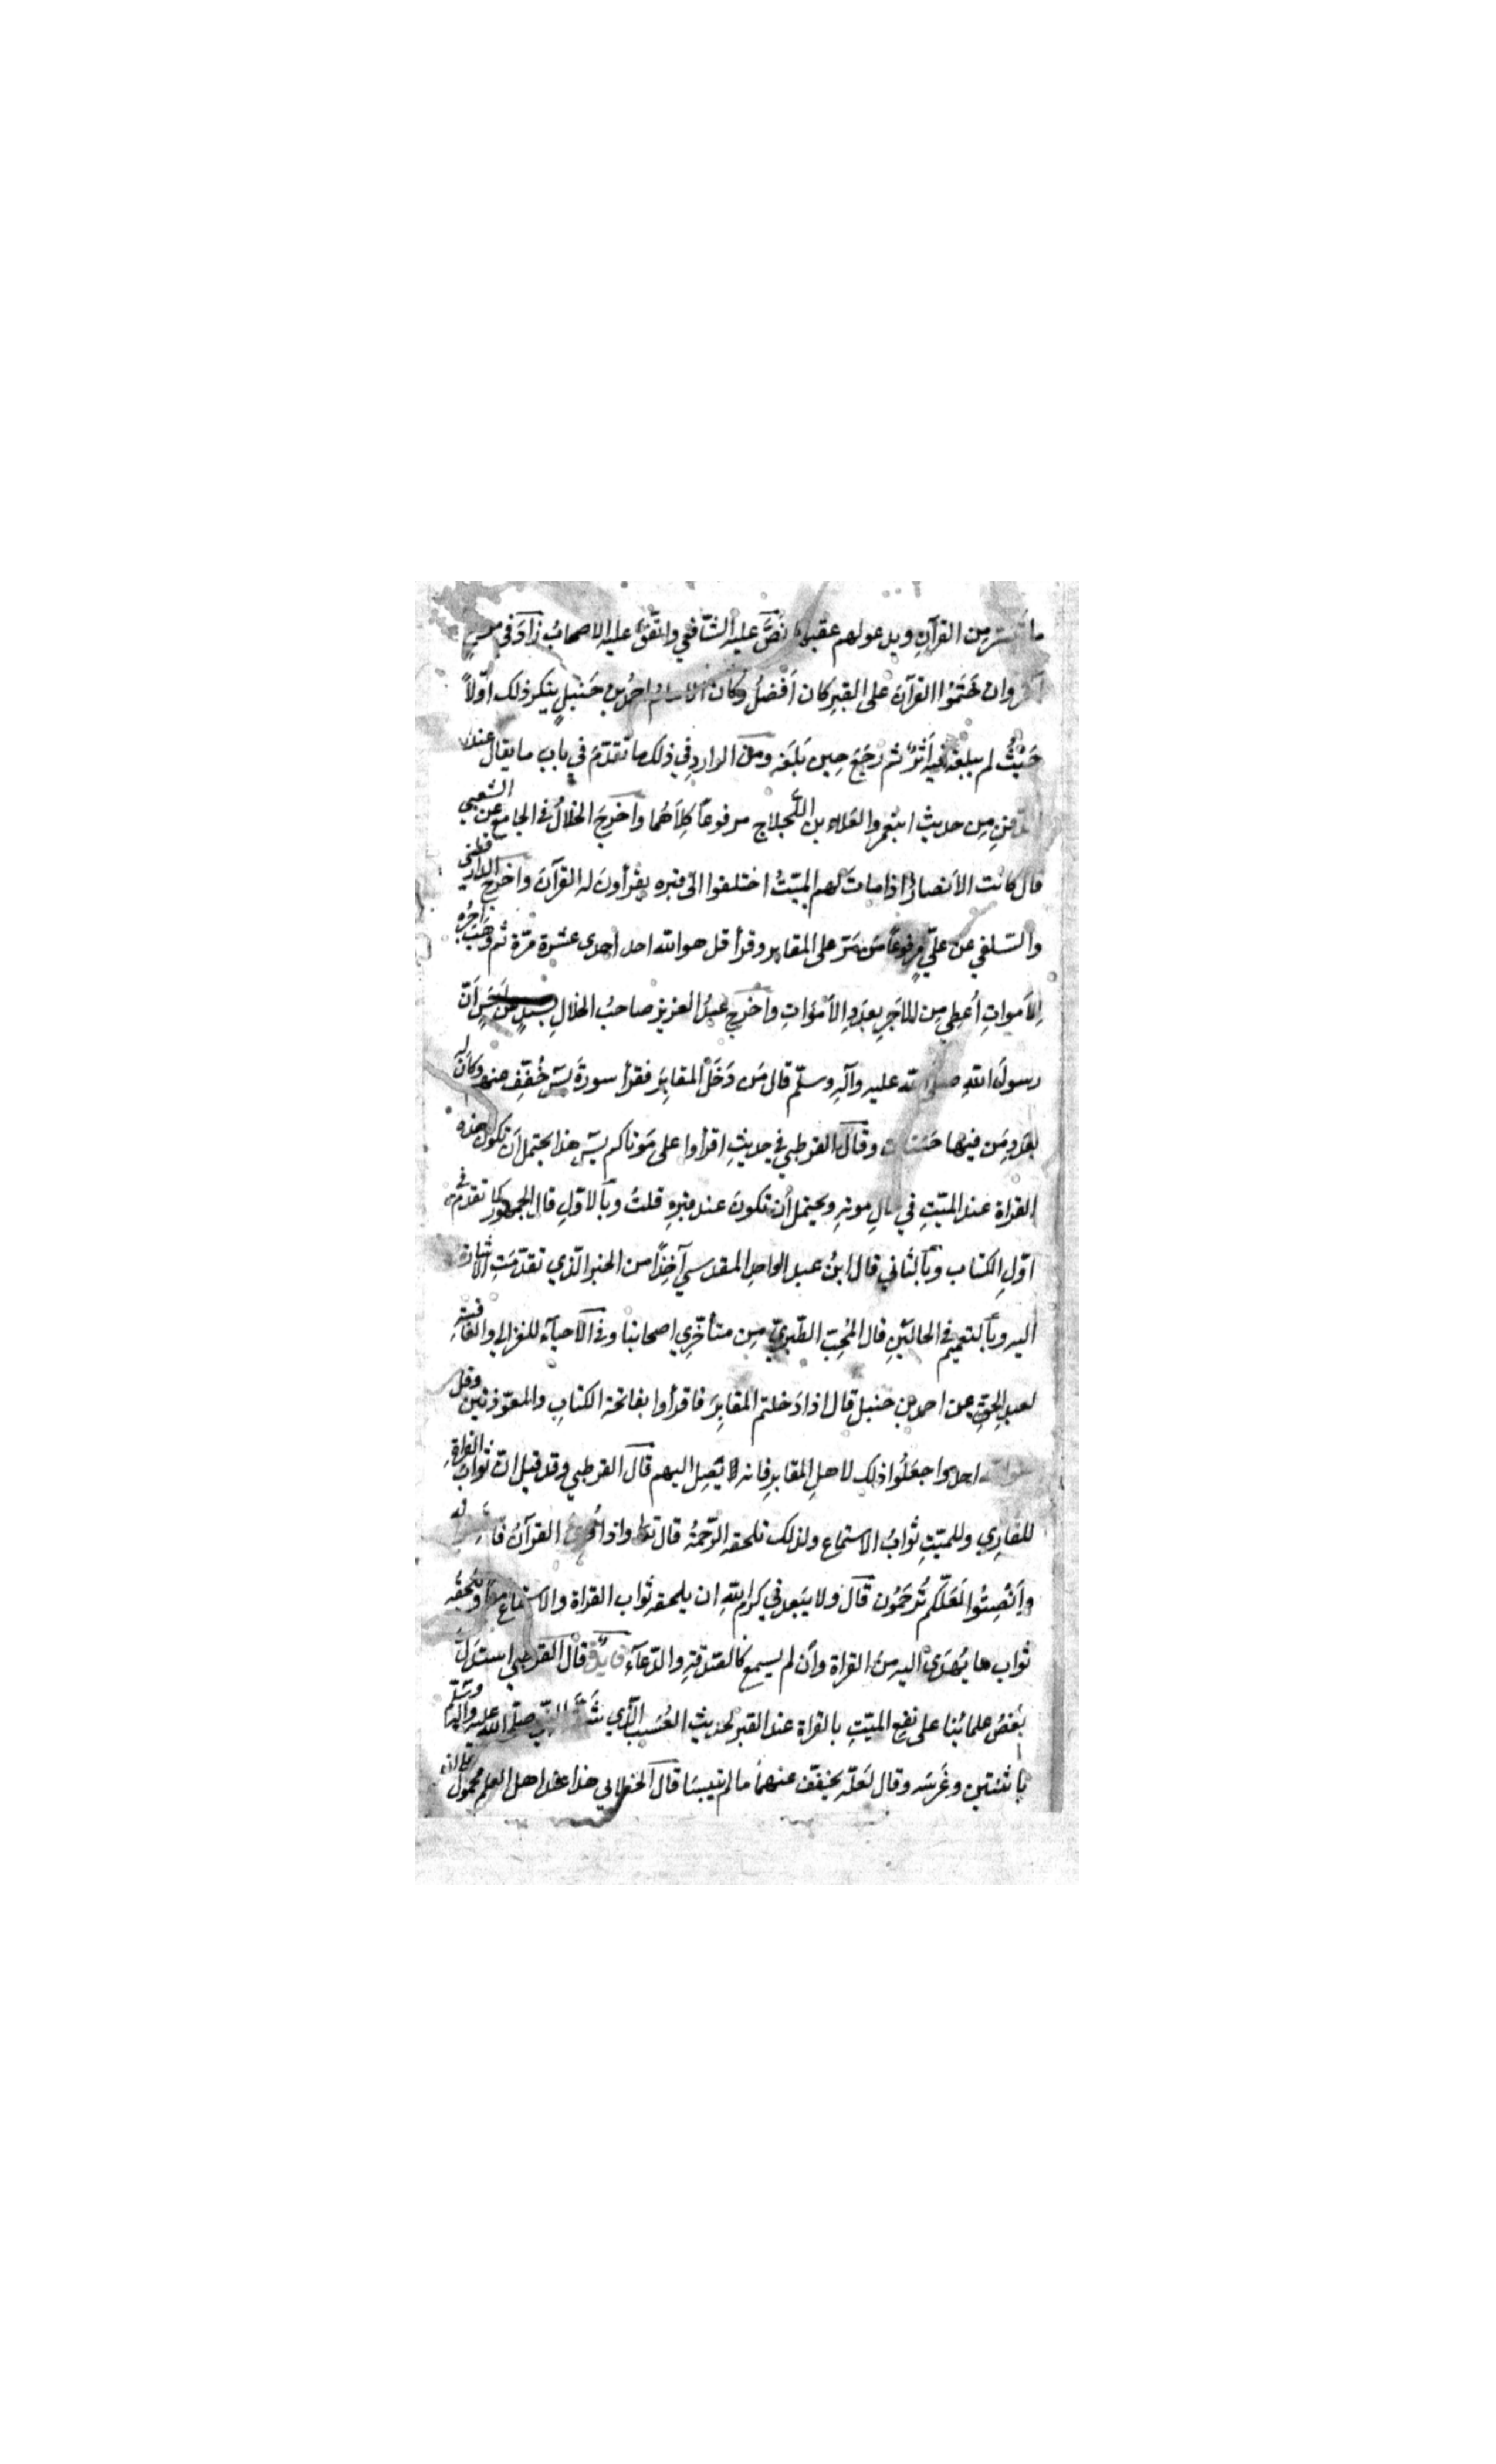 ما تيسر من القرآن ويدعو لهم عقبها نَصَّ عليه الشّافعي واتّفق عليه الاصحابُ زادَ في موضعٍ
آخر وان خَتَمُوا القرآنَ على القبرِ كان أَفضلُ وكان الامام احمدُ بن حَنبلٍ ينكر ذلك اوّلاً
حَيْثُ لم يبلغه فيه أَثَرٌ ثم رَجَعَ حِين بَلَغَه ومن الوارد في ذلك ما تقدّمَ في باب ما يقال عند
الدّفنِ مِن حديث ابنِ عمر والعَلاء بن اللَّجلاج مرفوعًا كِلاَهُما واخرجَ الخلالُ في الجامع عن الشعبي
قال كانت الأنصارُ اذا ماتَ لهم الميّتُ اختلفوا الى قبره يقرأونَ له القرآنَ واخرج الدارقطني
والسّلفي عن عليّ مرفوعًا مَن مَرَّ على المقابر وقرأ قل هو الله احد احدى عشرة مرّة ثم وَهَبَ اجرَه
لِلأمواتِ أُعطِي مِن الأجرِ بعَددِ الأمْوَاتِ واخرج عبدُ العزيز صاحبُ الخلالِ بسندٍ عن انسٍ أنّ
رسولَ اللهِ صلى الله عليه وآلهِ وسلّم قال مَن دَخَلَ المقابِرَ فقرأ سورةَ يسٓ خُفِّف عنهم وكان له
بعَددِ مَن فيها حَسَنات وقال القرطبي في حديثِ اقرأوا على مَوتاكم يسٓ هذا يحتمل أن تكونَ هذه
القراة عند الميّتِ في حالِ موتِهِ ويحتمل أن تكونَ عند قبرِهِ قلتُ وبالاوّلِ قال الجمهور كما تقدم في
اوّلِ الكتاب وبالثاني قال ابنُ عبد الواحدِ المقدسي آخِذًا من الخبر الّذي تقدّمَتِ الاشارة
اليه وبالتعميم في الحالتَينِ قال المُحِبّ الطّبريّ مِن متأخّرِي اصحابنا وفي الاحياء للغزالي والعاقبة
لعبدِ الحقِّ عن احمد بن حنبل قال اذا دَخلتم المقابِرَ فاقرأوا بفاتحة الكتابِ والمعوّذتَين وقل
هو الله احد واجعَلُوا ذلك لاهلِ المقابرِ فانه يَصِل اليهم قال القرطبي وقد قيل انّ ثوابَ القراةِ
للقارِي وللميّتِ ثوابُ الاستماع ولذلك تلحقه الرّحمةُ قال تعالى واذا قُرِئَ القرآنُ فاستمعوا له
وأَنصِتُوا لَعَلّكم تُرحَمُون قال ولا يَبعد في كرمِ اللهِ ان يلحقه ثواب القراة والاستماع معًا ويلحقه
ثواب ما يُهدَى اليه من القراة وان لم يسمع كالصّدقةِ والدّعآءِ فائدة قال القرطبي استدَلّ
بَعضُ علمائنا على نفعِ الميّتِ بالقراة عند القبر لحديثِ العُسَيب الّذي شَقَّه النّبي صلّى الله عليه وآله وسلّم
باثنَتين وغَرَسَه وقال لَعلّه يخفّف عنهما ما لم تيبسَا قال الخطابي هذا عند اهل العلم محمول على انه